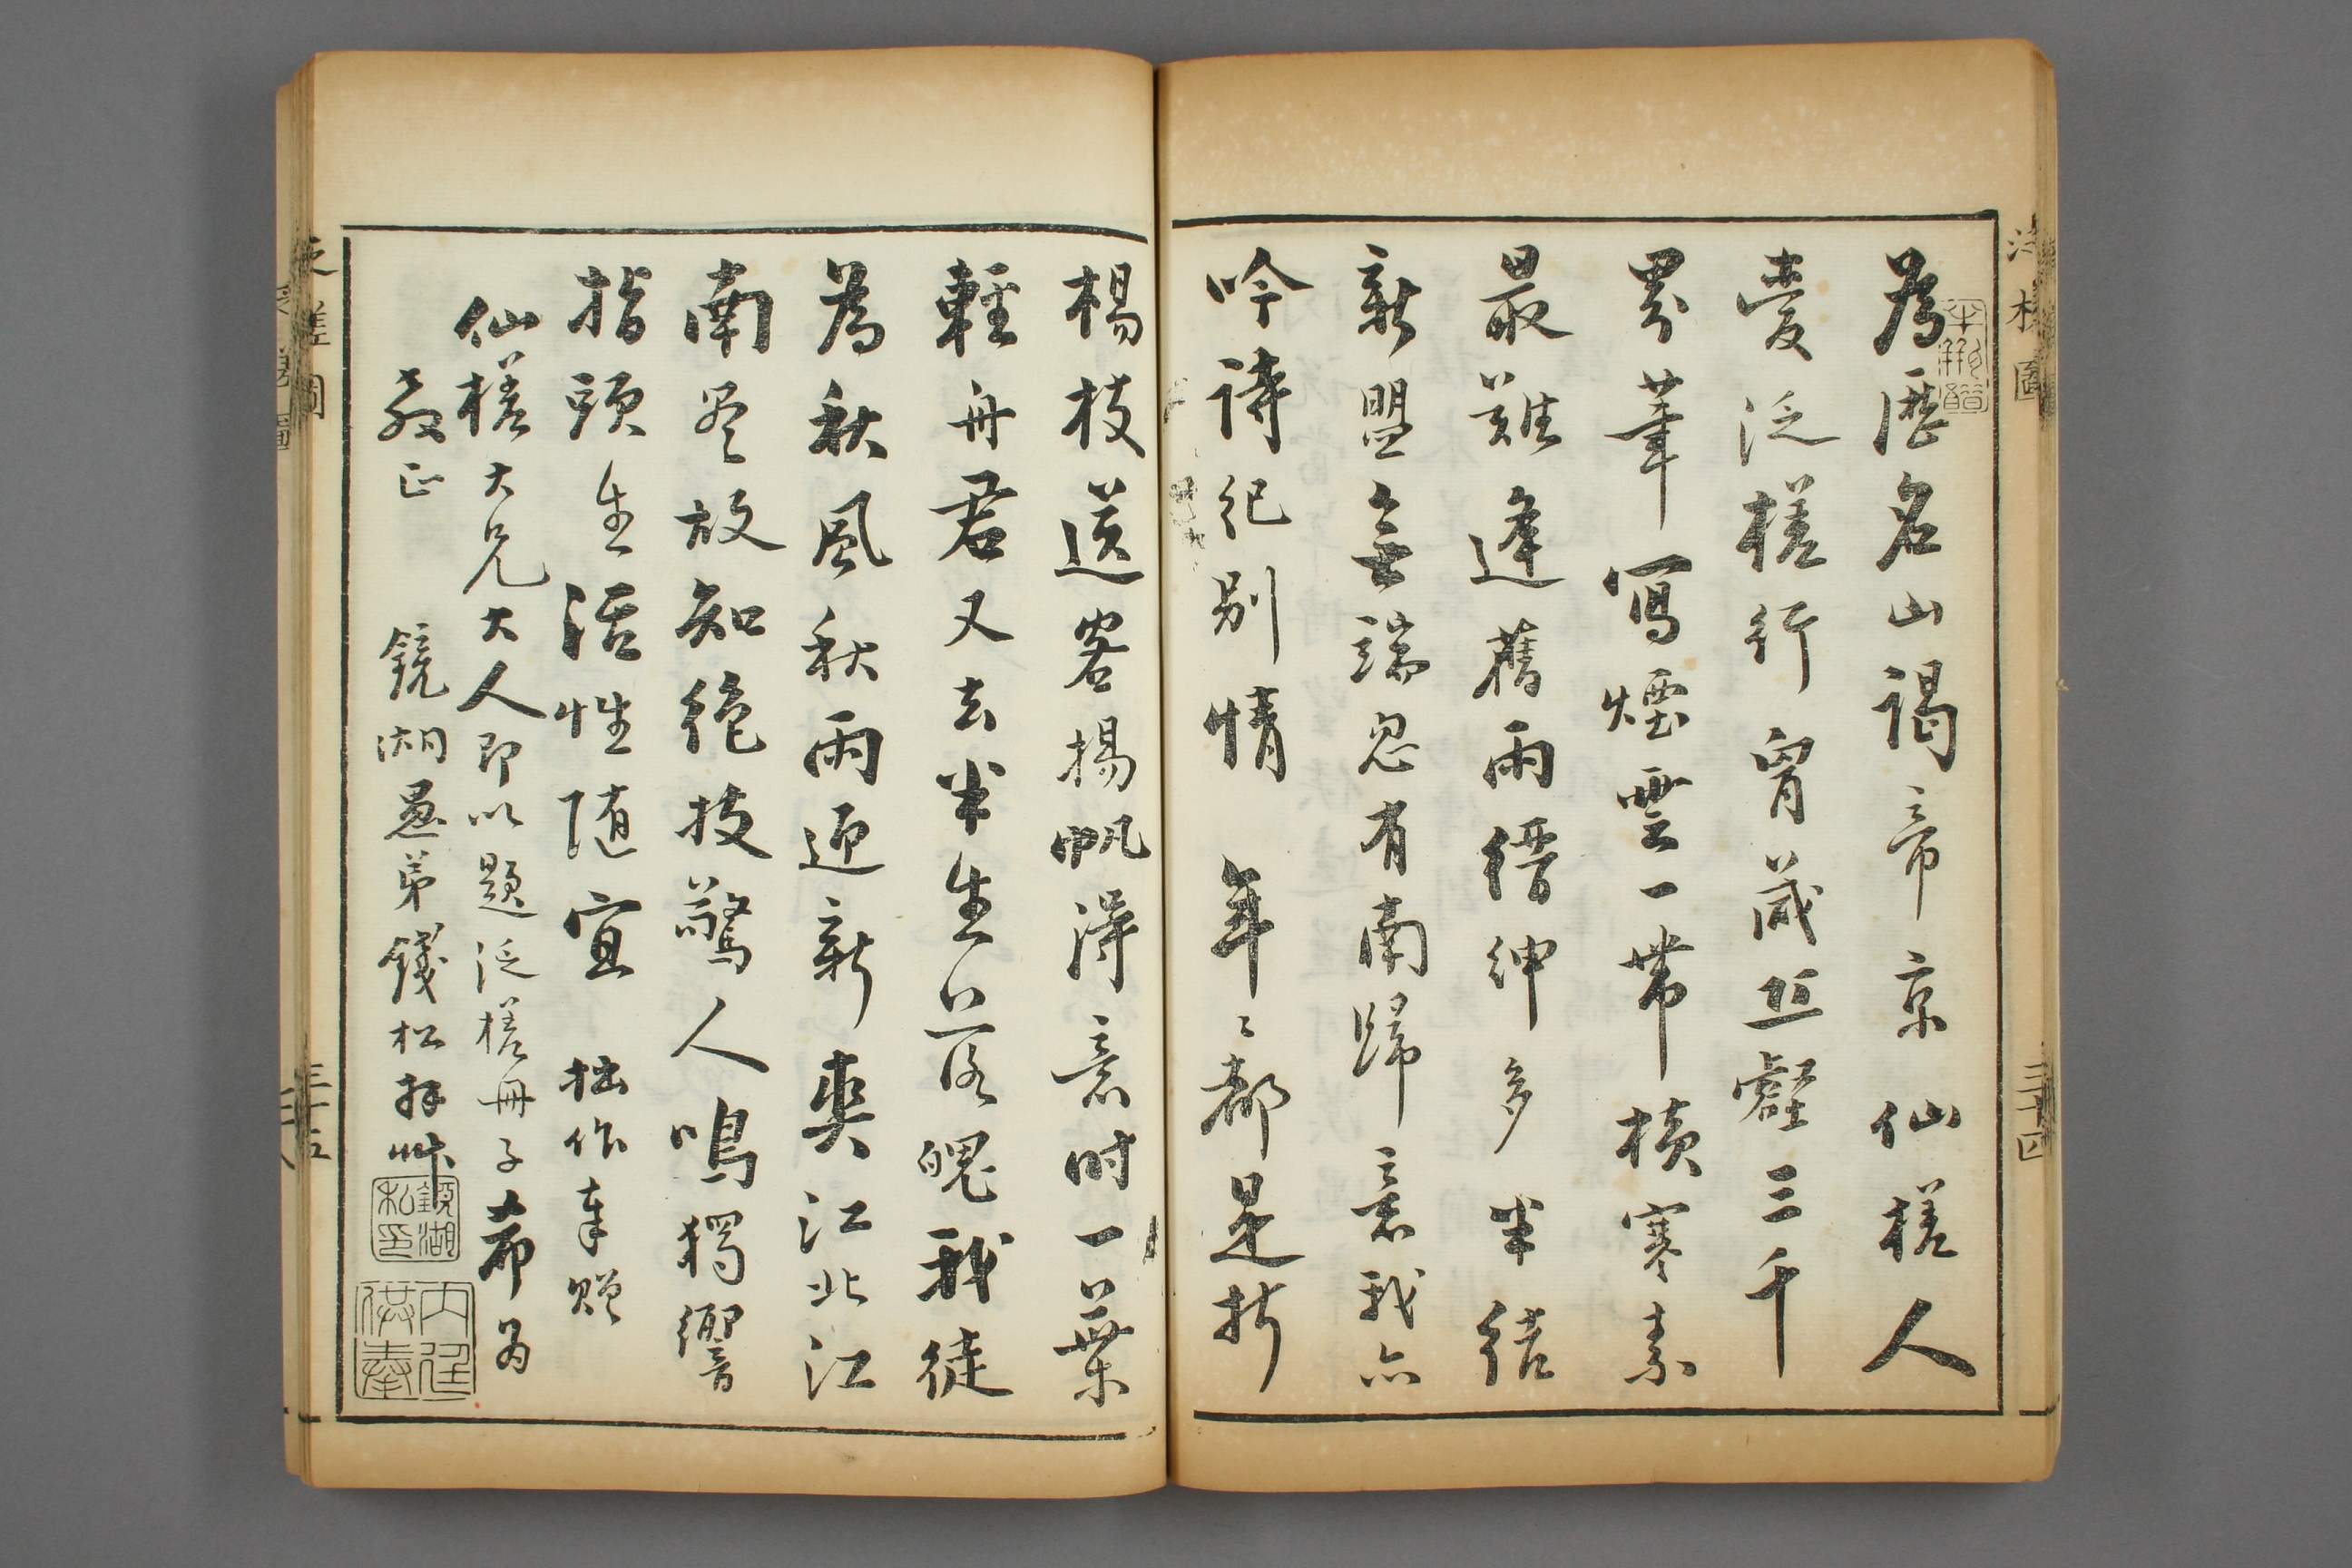 為歷名山謁帝京仙槎人
愛泛槎行胷藏丘壑三千
界筆寫煙雲一帶横寒素
最難逢舊雨縉紳多半結
新盟無端忽有南歸意我亦
吟詩紀别情 年〻都是折
楊枝送客揚帆得意时一葉
輕舟君又去半生落魄我徒
為秋風秋雨迎新爽江北江
南尽放知絶技驚人鳴獨響
指頭生活性随宜 拙作奉贈
仙槎大兄大人即以題泛槎冊子希為
教正 鏡湖愚弟錢松拜艸
鏡湖私印
內廷供奉
泛槎圖
三十四
泛槎圖
三十五